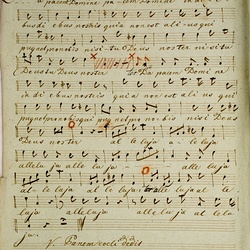 a pacem Domine pacem Domine in di
bus di ebus nostris quia non est ali us qui
pugnet pro nobis nisi tu Deus noster ni si tu
Deus tu Deus noster Da pacem Domi ne
in di e bus nostris quia non est ali us qui
pugnet pro nobis qui pugnet pro no bis nisi tu Deus
Deus noster al le luja alleluja
alleluja alleluja
al le luja al le luja al le
luja alleluja alleluja al lelu
ja.
V. Panem coeli dedit